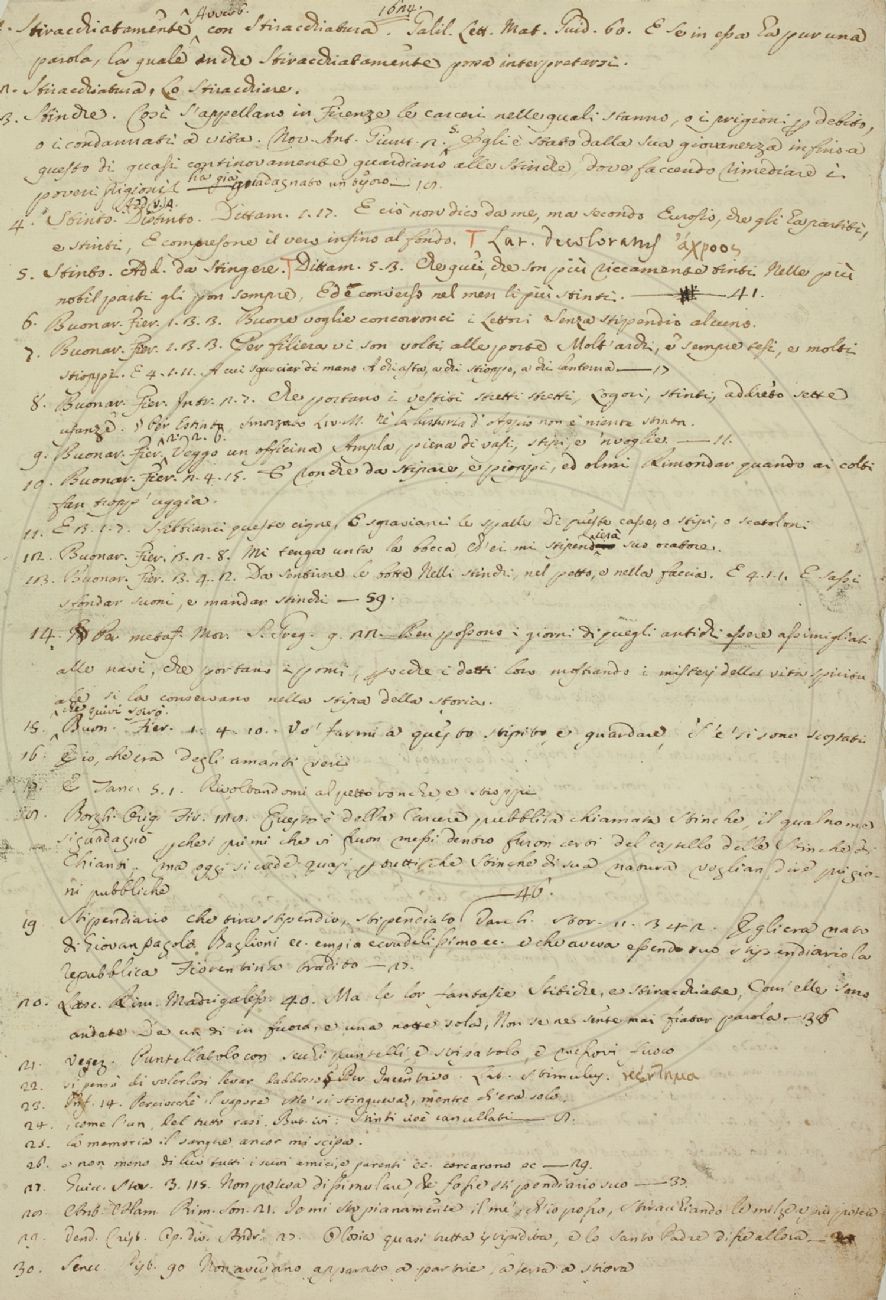 1624.
Avverb.
1. Stiracchiatamente con Stiracchiatura. Galil. Lett. Mat. Guid. 60. E se in essa ha pur una
parola, la quale anche Stiracchiatamente possa interpretarsi.
2. Stiracchiatura, Lo Stiracchiare.
3. Stinche. Così s'appellano in Firenze le carceri nelle quali stanno, o i prigioni p debito,
o i condannati a vita. Nov. Ant. Giunt. 2. 5. Egli è stato dalla sua giovanezza infino a
questo dì quasi continovamente guardiano alle Stinche, dove faccendo rimediare i
poveri prigioni ha già guadagnato un
4. Stinto. Distinto. Dittam. 1. 17. E ciò non dico da me, ma secondo Eurosio, che gli ha partiti,
e stinti, E compresone il vero infino al fondo. T Lat. decoloratus ἄχροος
5. Stinto. Add. da Stingere. T Dittam. 5. 3. Che quei, che son più riccamente tinti Nelle più
nobil parti gli son sempre, Ed è converso nel men li più stinti. 41.
6. Buonar. Fier. 1. 3. 3. Buone voglie concorronci i Lettori Senza stipendio alcuno.
7. Buonar. Fier. 1. 3. 3. Per filiera vi son volti alle porte Molt'archi, e sempre tesi, e molti
stioppi. E 4. 1. 11. A cui di mano A chi asta, a chi stioppo, a chi lanterna 17
8. Buonar. Fier. Intr. 2. 7. Che portano i vestiti stretti stretti, Logori, stinti, addreto sette
usanze. Per Estinto, Smorzato Liv. M. Nè la lussuria d'Appio non è niente stinta.
9. Buonar. Fier. Veggo un officina Ampla, piena di vasi, stipi, e 'nvoglie. 11.
10. Buonar. Fier. 2. 4. 15. E ronche da stipare, e pioppi, ed olmi Rimondar quando ai colti
fan tropp'uggia.
11. E 3. 1. 7. queste cigne, E sgravianci le spalle Di queste casse, o stipi, o scatoloni
12. Buonar. Fier. 3. 2. 8. Mi tenga unta la bocca Ch'ei mi suo oratore.
13. Buonar. Fier. 3. 4. 12. Da sentirne le botte Nelli stinchi, nel petto, e nella faccia. E 4. 1. 1. E sassi
sfondar usci, e mandar stinchi 59.
14. Per metaf. Mor. S. Greg. 9. 22. Ben possono i giorni di quegli antichi essere assimigliati
alle navi, che portano i pomi, p ochè i detti loro mostrando i misterj della vita spiritu-
ale si la conservano nella stipa della storia.
Che quivi sarò.
15. Buon. Fier. 1. 4. 10. Vo' farmi a questo stipito, e guardare, S'e' si sono scostati
16. Ch'io, ch'era degli amanti veri
17. E Tanc. 5. 1. Rivoltandomi al petto ronche, e stioppi
18. Borgh. Orig. Fir. 129. Questo è della Carcere pubblica chiamata Stinche, il qual nome
si guadagnò p che i primi che vi furon messi dentro furon certi del castello delle Stinche di
Chianti: ma oggi si crede quasi p tutti, che Stinche di sua natura voglian dire prigio-
ni pubbliche 46.
19. Stipendiario che tira stipendio, stipendiato Varch. Stor. 11. 342. Egli era nato
di Giovan Pagolo Baglioni ec. empio e crudelissimo ec. e che aveva essendo suo stipendiario la
repubblica Fiorentina tradito 27.
20. Lasc. Rim. Madrigaless. 40. Ma le lor fantasie Stitiche, e stiracchiate, Com'elle sono
andate Da un dì in fuora, e una notte sola, Non se ne sente mai fiatar parola 36
21. Veget. Puntellatolo con secchi puntelli, e stipatolo, e messovi fuoco
22. si pensò di volerlosi levar daddosso. Per Incentivo. Lat. Stimulus.
23. Inf. 14. Perciocchè 'l vapore Me' si stingueva, mentre ch'era solo.
24. come l'un, del tutto rasi. But. ivi: Stinti cioè cancellati
25. la memoria il sangue ancor mi scipa.
26. e non meno di lui tutti i suoi amici, e parenti ec. cercarono ec 29.
27. Guicc. Stor. 3. 115. Non poteva dissimulare, che fosse stipendiario suo 37.
28. Rim. Son. 21. Io mi sto pianamente il me' ch'io posso, Stiracchiando le milze
29. quasi tutta stipidita, e lo Santo Padre disse allora
30. apparato a pastrie, a terra a stiora